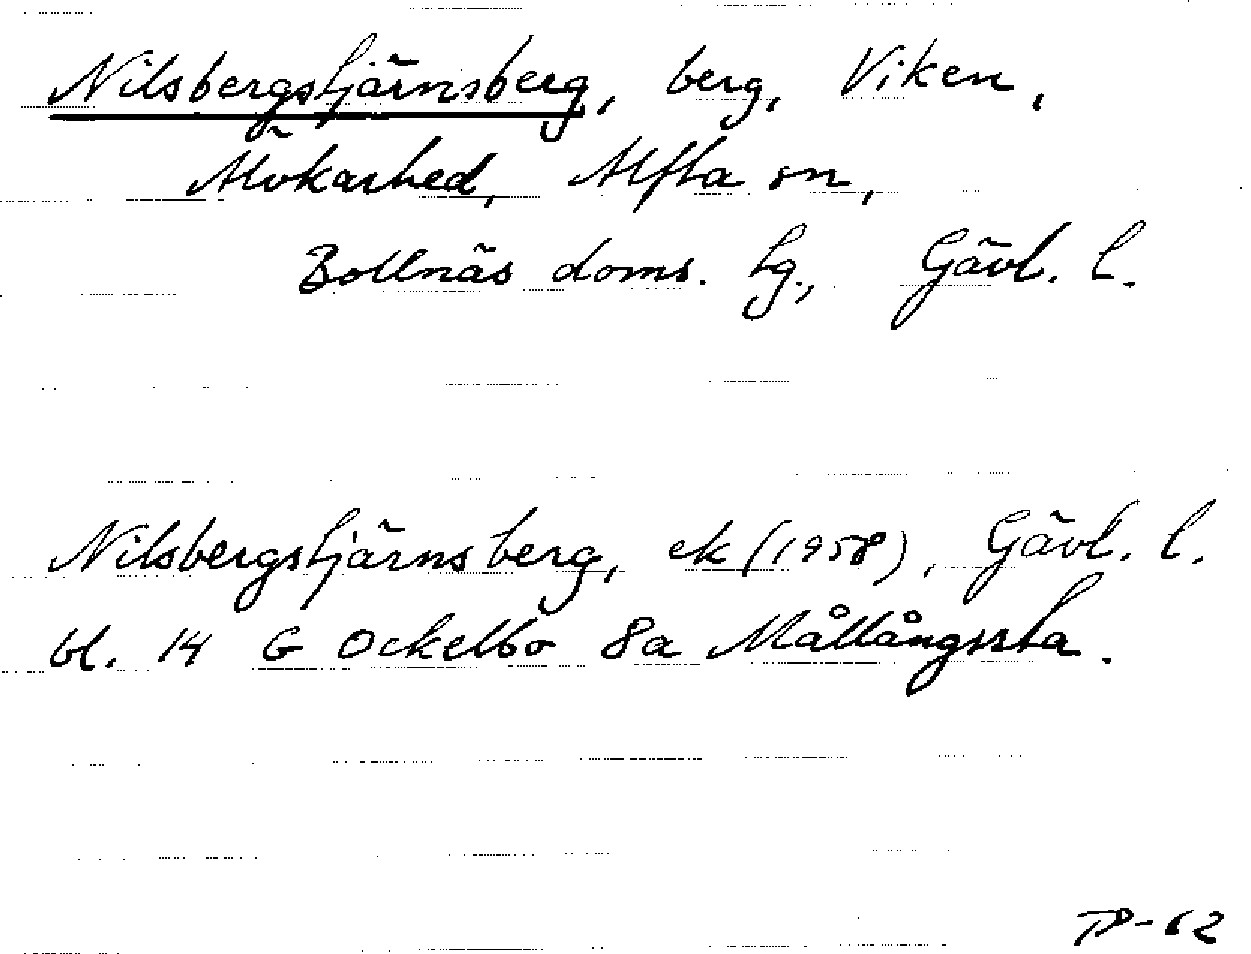 Nilsbergstjärnsberg, berg, Viken,
Älvkarhed, Alfta sn,
Bollnäs doms. hg., Gävl. l.
Nilsbergstjärnsberg, ek (1958), Gävl. l.
bl. 14 G Ockelbo 8a Mållångssta.
TP-62